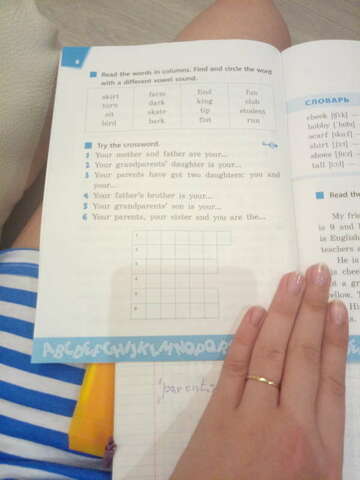 4
Read the words in columns. Find and circle the word
with a different vowel sound.
skirt farm find fun
turn dark king club
sit skate tip student
bird bark fist run
Try the crossword.
1 Your mother and father are your...
2 Your grandparents' daughter is your...
3 Your parents have got two daughters: you and
your...
4 Your father's brother is your...
5 Your grandparents' son is your...
6 Your parents, your sister and you are the...
1
2
3
4
5
6
СЛОВАРЬ
cheek
hobby
scarf
shirt
shoes
tall
Read the
My frie
is 9 and
is English
teachers a
He is
is chee
a gr
yellow.
Hi
parents